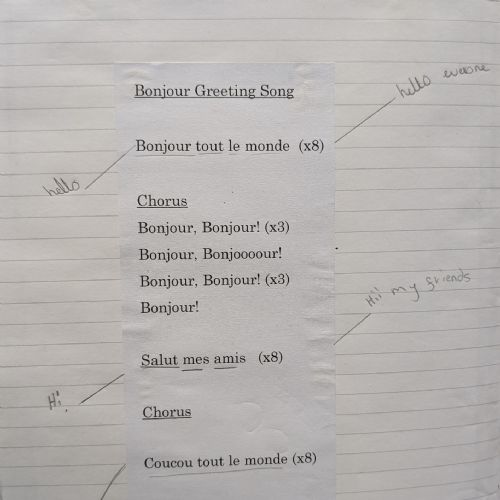 Bonjour Greeting Song
hello everone
Bonjour tout le monde (x8)
hello
Chorus
Bonjour, Bonjour! (x3)
Bonjour, Bonjoooour!
Bonjour, Bonjour! (x3)
Bonjour!
Hi! my friends
Salut mes amis (x8)
Hi!
Chorus
Coucou tout le monde (x8)